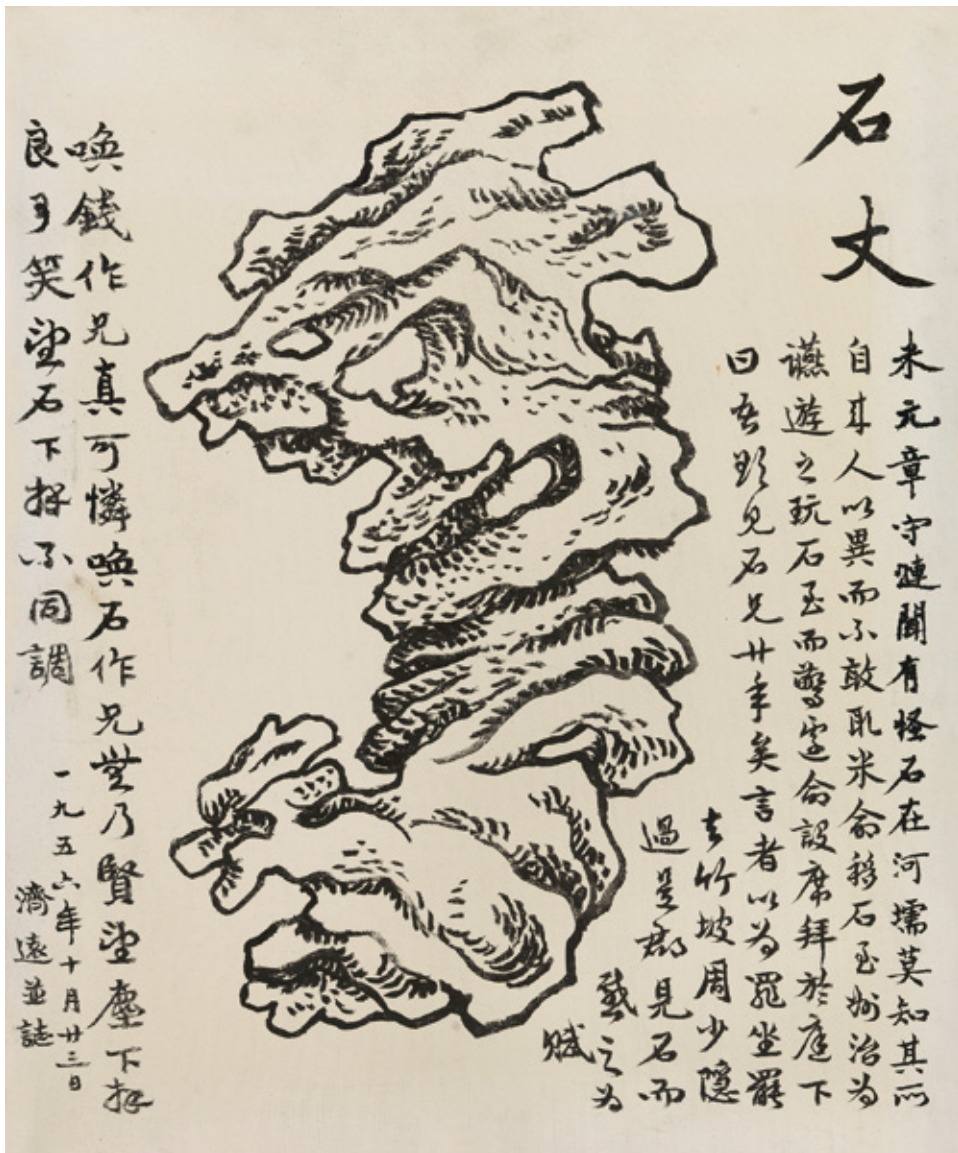 石丈
米元章守漣聞有怪石在河壖莫知其所
自來人以異而不敢取米命移石至州治為
讌遊之玩石至而驚遽命設席拜於庭下
曰吾欲見石兄廿年矣言者以為罪坐罷
去竹坡周少隱
過是郡見石而
感之為
賦
喚錢作兄真可憐喚石作兄無乃賢望塵下拜
良可笑望石下拜不同調
一九五六年十月廿三日
濟遠並誌